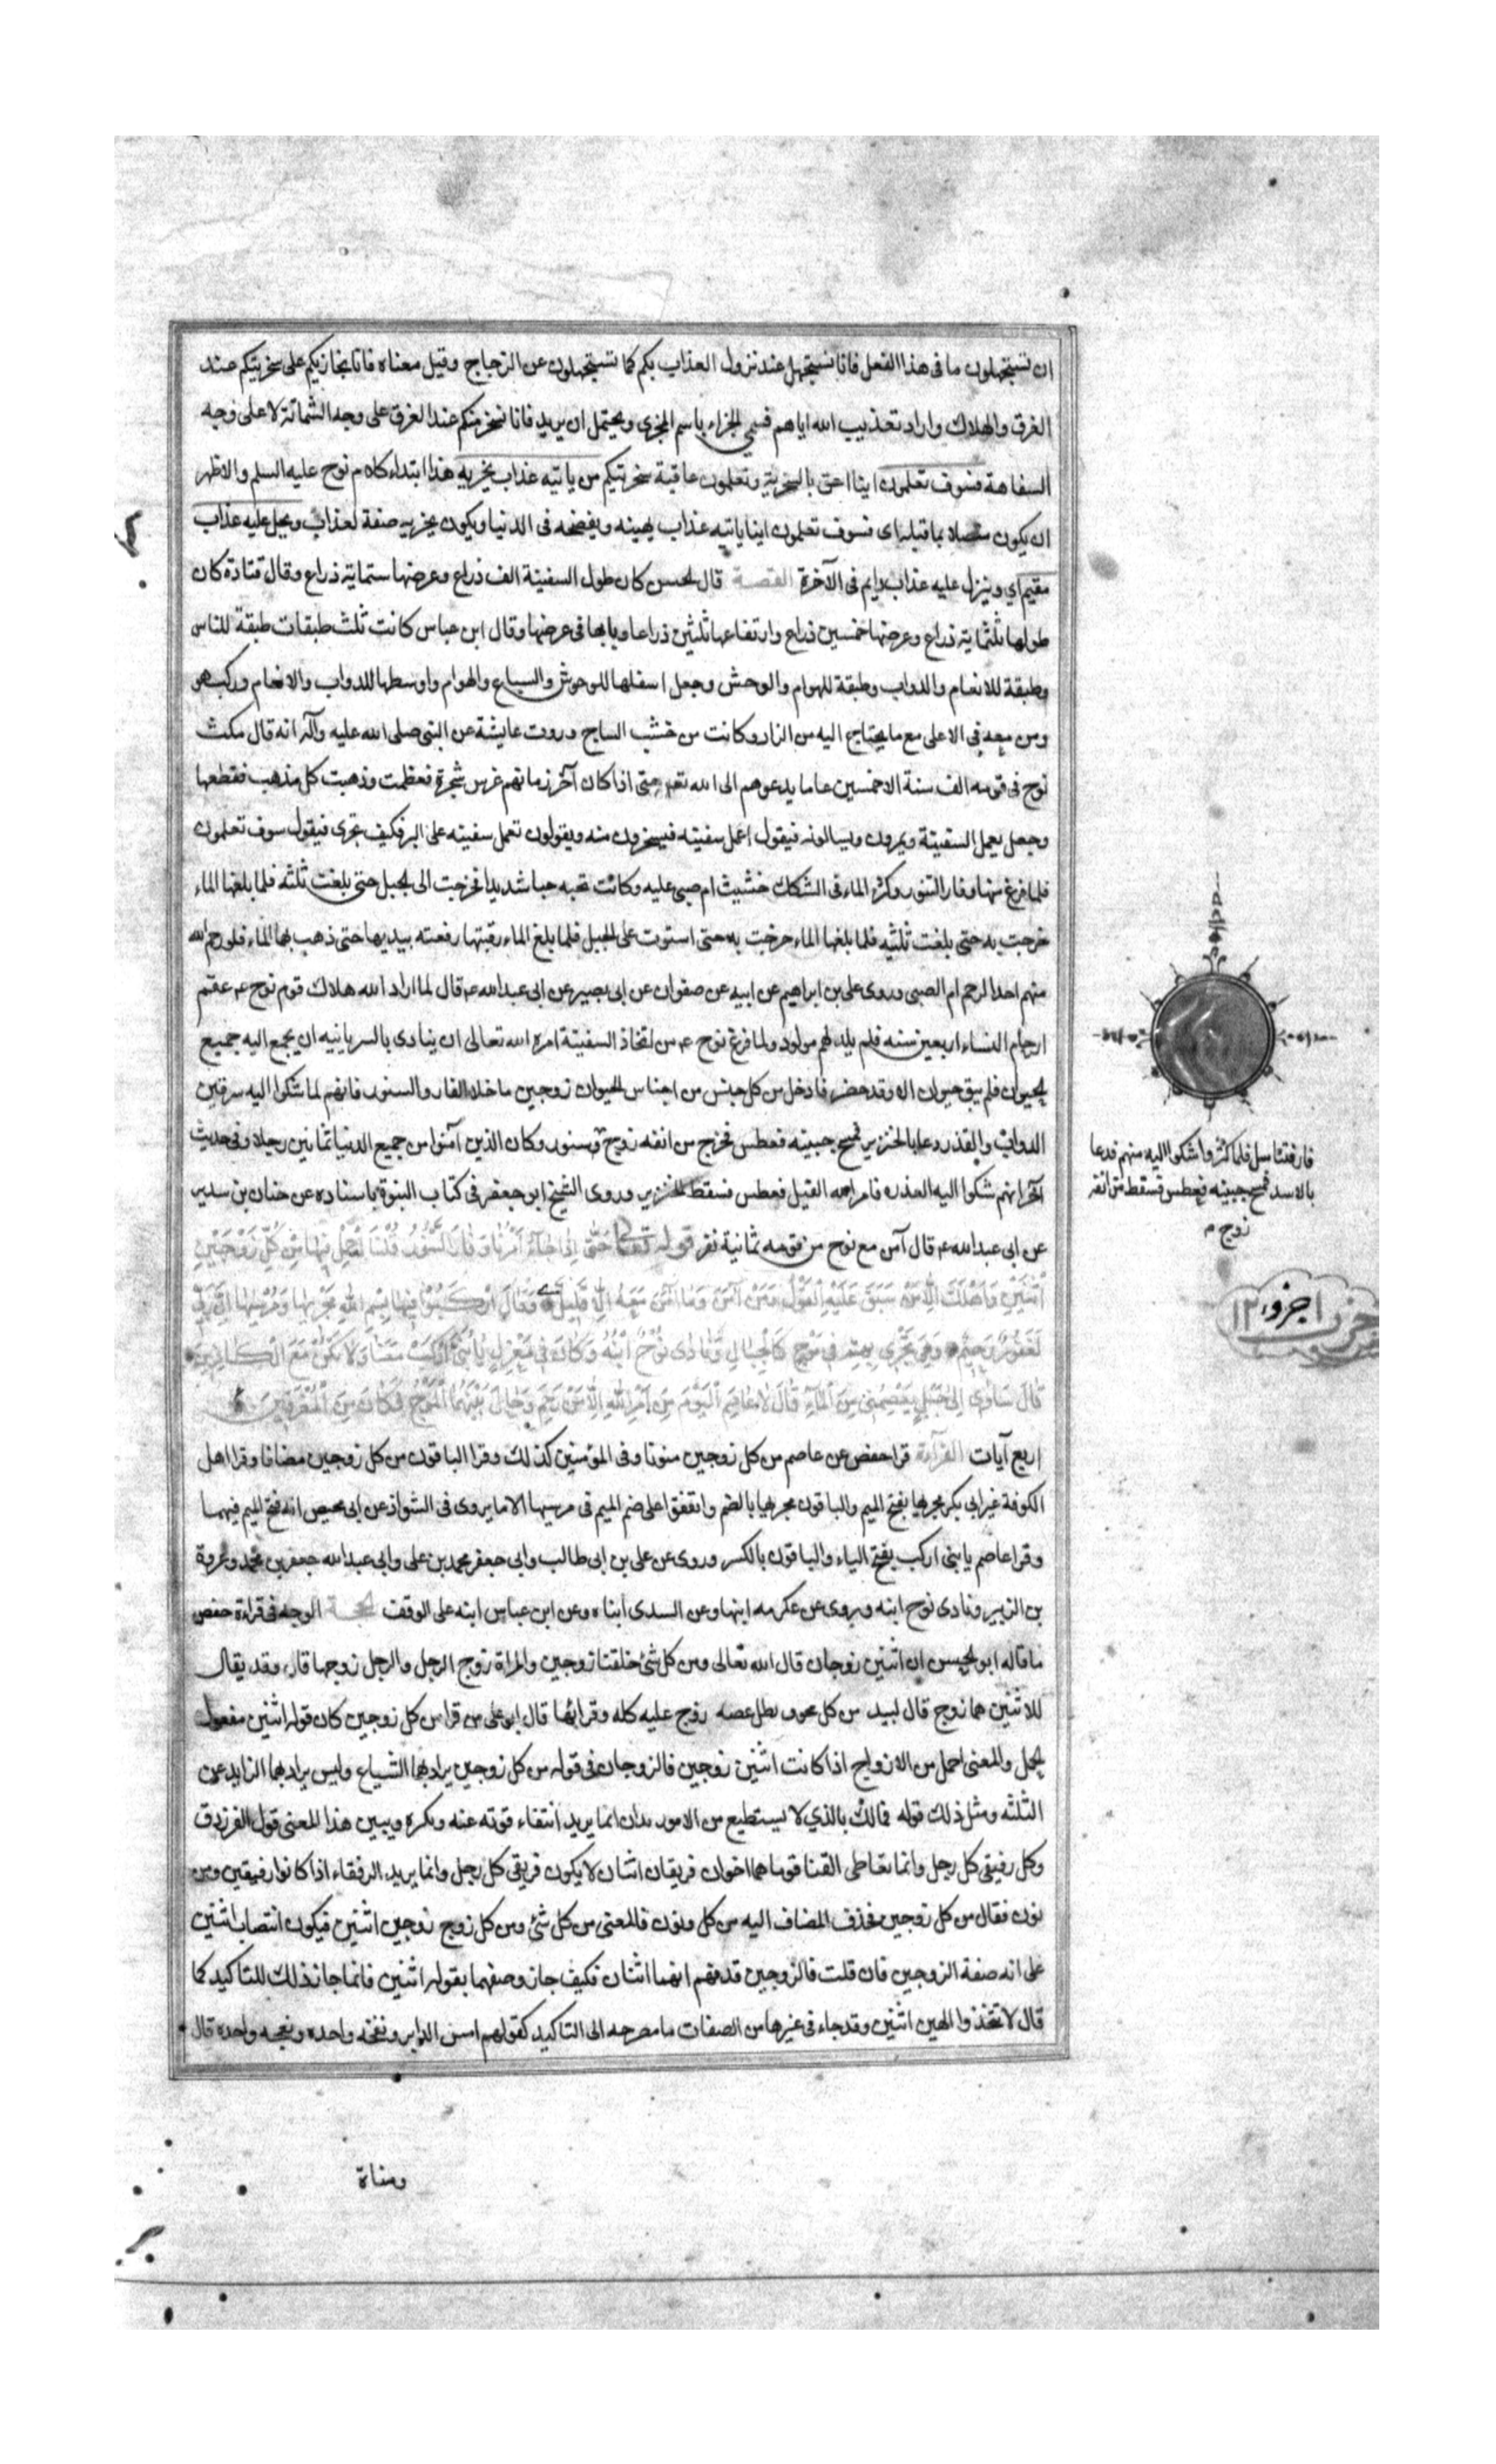 ان تستجهلون ما فى هذا الفعل فانا نستجهلكم عند نزول العذاب بكم كما تستجهلون عن الزجاج وقيل معناه فانا نجازيكم على سخريتكم عند
الغرق والهلاك واراد تعذيب الله اياهم فسمى الجزاء باسم المجزى ويحتمل ان يريد فانا نسخر منكم عند الغرق على وجه الشماتة لا على وجه
السفاهة فسوف تعلمون اينا احق بالسخرية وتعلمون عاقبة سخريتكم من ياتيه عذاب يخزيه هذا ابتداء كلام نوح عليه السلم والاظهر
ان يكون متصلا بما قبله اى فسوف تعلمون اينا ياتيه عذاب يهينه ويفضحه فى الدنيا ويكون يخزيه صفة لعذاب ويحل عليه عذاب
مقيم اي وينزل عليه عذاب دايم فى الآخرة القصة قال الحسن كان طول السفينة الف ذراع وعرضها ستماية ذراع وقال قتادة كان
طولها ثلثماية ذراع وعرضها خمسين ذراع وارتفاعها ثلثين ذراعا وبابها فى عرضها وقال ابن عباس كانت ثلث طبقات طبقة للناس
وطبقة للانعام والدواب وطبقة للهوام والوحش وجعل اسفلها للوحوش والسباع والهوام واوسطها للدواب والانعام وركب هو
ومن معه فى الاعلى مع ما يحتاج اليه من الزاد وكانت من خشب الساج وروت عايشة عن النبى صلى الله عليه وآله انه قال مكث
نوح فى قومه الف سنة الا خمسين عاما يدعوهم الى الله تعه حتى اذا كان آخر زمانهم غرس شجرة فعظمت وذهبت كل مذهب فقطعها
وجعل يعمل السفينة ويمرون ويسالونه فيقول اعمل سفينه فيسخرون منه ويقولون تعمل سفينه على البر فكيف تجرى فيقول سوف تعلمون
فلما فرغ منها وفار التنور وكثر الماء فى السكك خشيت ام صبى عليه وكانت تحبه حبا شديدا فخرجت الى الجبل حتى بلغت ثلثه فلما بلغها الماء
خرجت به حتى بلغت ثلثيه فلما بلغها الماء خرجت به حتى استوت على الجبل فلما بلغ الماء رقبتها رفعته بيديها حتى ذهب بها الماء فلو رحم الله
منهم احدا لرحم ام الصبى وروى على بن ابراهيم عن ابيه عن صفوان عن ابى بصير عن ابى عبد الله ع قال لما اراد الله هلاك قوم نوح ع عقم
ارحام النساء اربعين سنه فلم يلد لهم مولود ولما فرغ نوح ع من اتخاذ السفينة امره الله تعالى ان ينادى بالسريانيه ان يجمع اليه جميع
الحيوان فلم يبق حيوان الا وقد حضر فادخل من كل جنس من اجناس الحيوان زوجين ما خلا الفار والسنور فانهم لما شكوا اليه سرقين
الدواب والقذر دعا بالخنزير فمسح جبينه فعطس فخرج من انفه زوج سنور وكان الذين آمنوا من جميع الدنيا ثمانين رجلا وفى حديث
آخر انهم شكوا اليه العذره فامر الله الفيل فعطس فسقط الخنزير وروى الشيخ ابو جعفر فى كتاب النبوة باسناده عن حنان بن سدير
عن ابى عبد الله ع قال آمن مع نوح من قومه ثمانية نفر قوله تعالى حَتّٰى اِذَا جَاءَ اَمْرُنَا وَفَارَ التَّنُّورُ قُلْنَا احْمِلْ فِيهَا مِنْ كُلٍّ زَوْجَيْنِ
اثْنَيْنِ وَاَهْلَكَ اِلَّا مَنْ سَبَقَ عَلَيْهِ الْقَوْلُ وَمَنْ آمَنَ وَمَا آمَنَ مَعَهُ اِلَّا قَلِيلٌ وَقَالَ ارْكَبُوا فِيهَا بِسْمِ اللهِ مَجْرٰيهَا وَمُرْسٰيهَا اِنَّ رَبِّى
لَغَفُورٌ رَحِيمٌ وَهِىَ تَجْرِى بِهِمْ فِى مَوْجٍ كَالْجِبَالِ وَنَادٰى نُوحٌ ابْنَهُ وَكَانَ فِى مَعْزِلٍ يَا بُنَىَّ ارْكَبْ مَعَنَا وَلَا تَكُنْ مَعَ الْكَافِرِينَ
قَالَ سَآوِى اِلٰى جَبَلٍ يَعْصِمُنِى مِنَ الْمَاءِ قَالَ لَا عَاصِمَ الْيَوْمَ مِنْ اَمْرِ اللهِ اِلَّا مَنْ رَحِمَ وَحَالَ بَيْنَهُمَا الْمَوْجُ فَكَانَ مِنَ الْمُغْرَقِينَ
اربع آيات القراءة قرا حفص عن عاصم من كل زوجين منونا وفى المؤمنين كذلك وقرا الباقون من كل زوجين مضافا وقرا اهل
الكوفة غير ابى بكر مجريها بفتح الميم والباقون مجريها بالضم واتفقوا على ضم الميم فى مرسيها الا ما يروى فى الشواذ عن ابى محيص انه فتح الميم فيهما
وقرا عاصم يا بنى اركب بفتح الياء والباقون بالكسر وروى عن على بن ابى طالب وابى جعفر محمد بن على وابى عبد الله جعفر بن محمد وعروة
بن الزبير ونادى نوح ابنه وروى عن عكرمه ابنها وعن السدى ابناه وعن ابن عباس ابنه على الوقف الحجة الوجه فى قراءة حفص
ما قاله ابو الحسن ان اثنين زوجان قال الله تعالى ومن كل شئ خلقنا زوجين والمراة زوج الرجل والرجل زوجها قال وقد يقال
للاثنين هما زوج قال لبيد من كل محفوف يظل عصيه زوج عليه كله وقرامها قال ابو على من قرا من كل زوجين كان قوله اثنين مفعول
الحمل والمعنى احمل من الازواج اذا كانت اثنين زوجين فالزوجان فى قوله من كل زوجين يراد بهما الشياع وليس يراد بهما الزايد عن
الثلثه ومثل ذلك قوله فمالك بالذي لا يستطيع من الامور يدان انما يريد انتفاء قوته عنه وبكره ويبين هذا المعنى قول الفرزدق
وكل رفيقى كل رجل وانما تعاطى القنا قوماهما اخوان فريقان اثنان لا يكون فريقى كل رجل وانما يريد الرفقاء اذا كانوا رفيقين ومن
نون فقال من كل زوجين فحذف المضاف اليه من كل ونون فالمعنى من كل شئ ومن كل زوج زوجين اثنين فيكون انتصاب اثنين
على انه صفة الزوجين فان قلت فالزوجين قد فهم انهما اثنان فكيف جاز وصفهما بقوله اثنين فانما جاز ذلك للتاكيد كما
قال لا تتخذوا الهين اثنين وقد جاء فى غيرها من الصفات ما مصرحه الى التاكيد كقولهم امس الدابر ونفخه واحده ونعجه واحده قال
ومناة
فارفثتا سل فلما كثروا شكوا اليه منهم فدعا
بالاسد فمسح جبينه فعطس فسقط من انفه
زوج م
اجزو ١٢